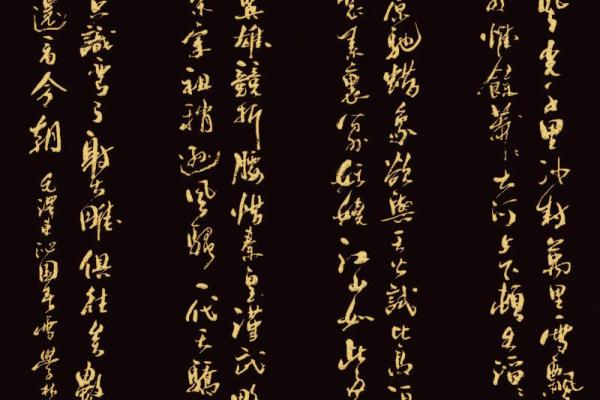 風光千里冰封萬里雪飄
惟餘莽々大河上下頓失滔々
原馳蠟象欲與天公試比高須
裝素裹分外妖嬈江山如此多
英雄競折腰惜秦皇漢武略
宗宋祖稍遜風騷一代天驕
只識彎弓射大雕俱往矣數
還看今朝 毛澤東沁園春雪學林